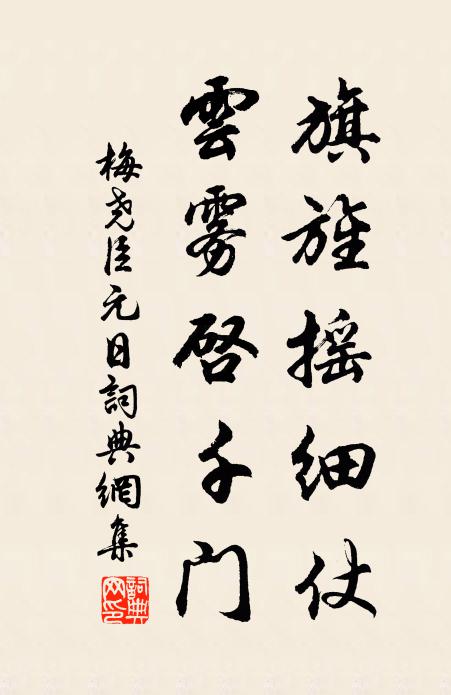 旗旌摇細仗
雲雾啓千门
梅尧臣元日詞典網集
詞典網印